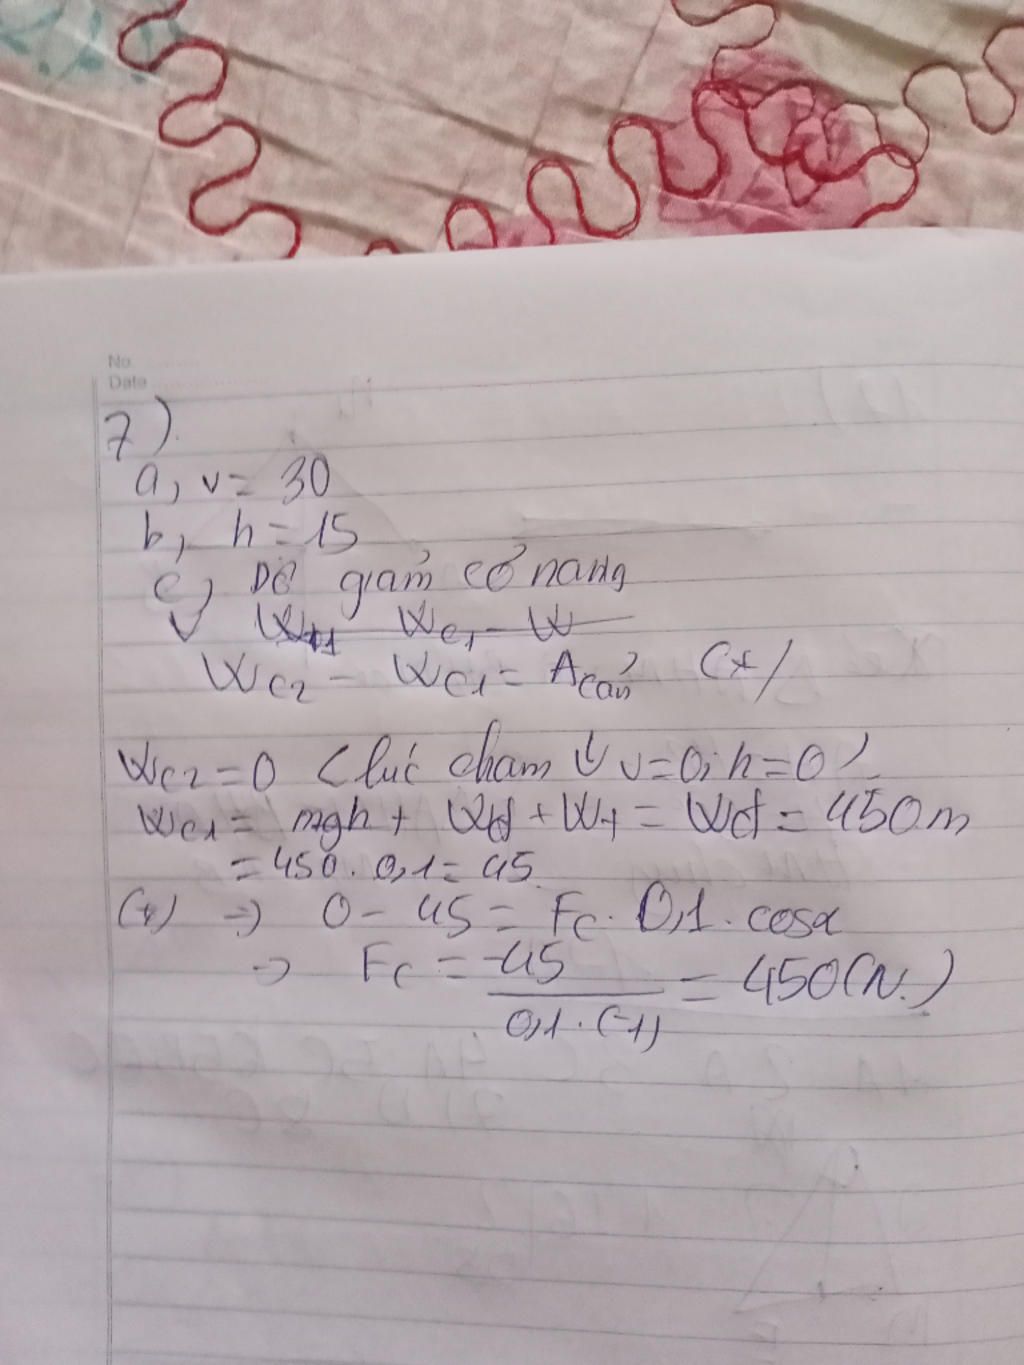 No.
Date
7)
a, v = 30
b, h = 15
c, Độ giảm cơ năng
Wc1 - W
Wc2 - Wc1 = Acản (*)
Wc2 = 0 < lúc chạm ↓ v=0; h=0)
Wc1 = mgh + Wđ + Wt = Wđ = 450m
= 450. 0,1 = 45
(*) => 0 - 45 = Fc. 0,1. cosα
=> Fc = -45 / 0,1.(-1) = 450(N.)